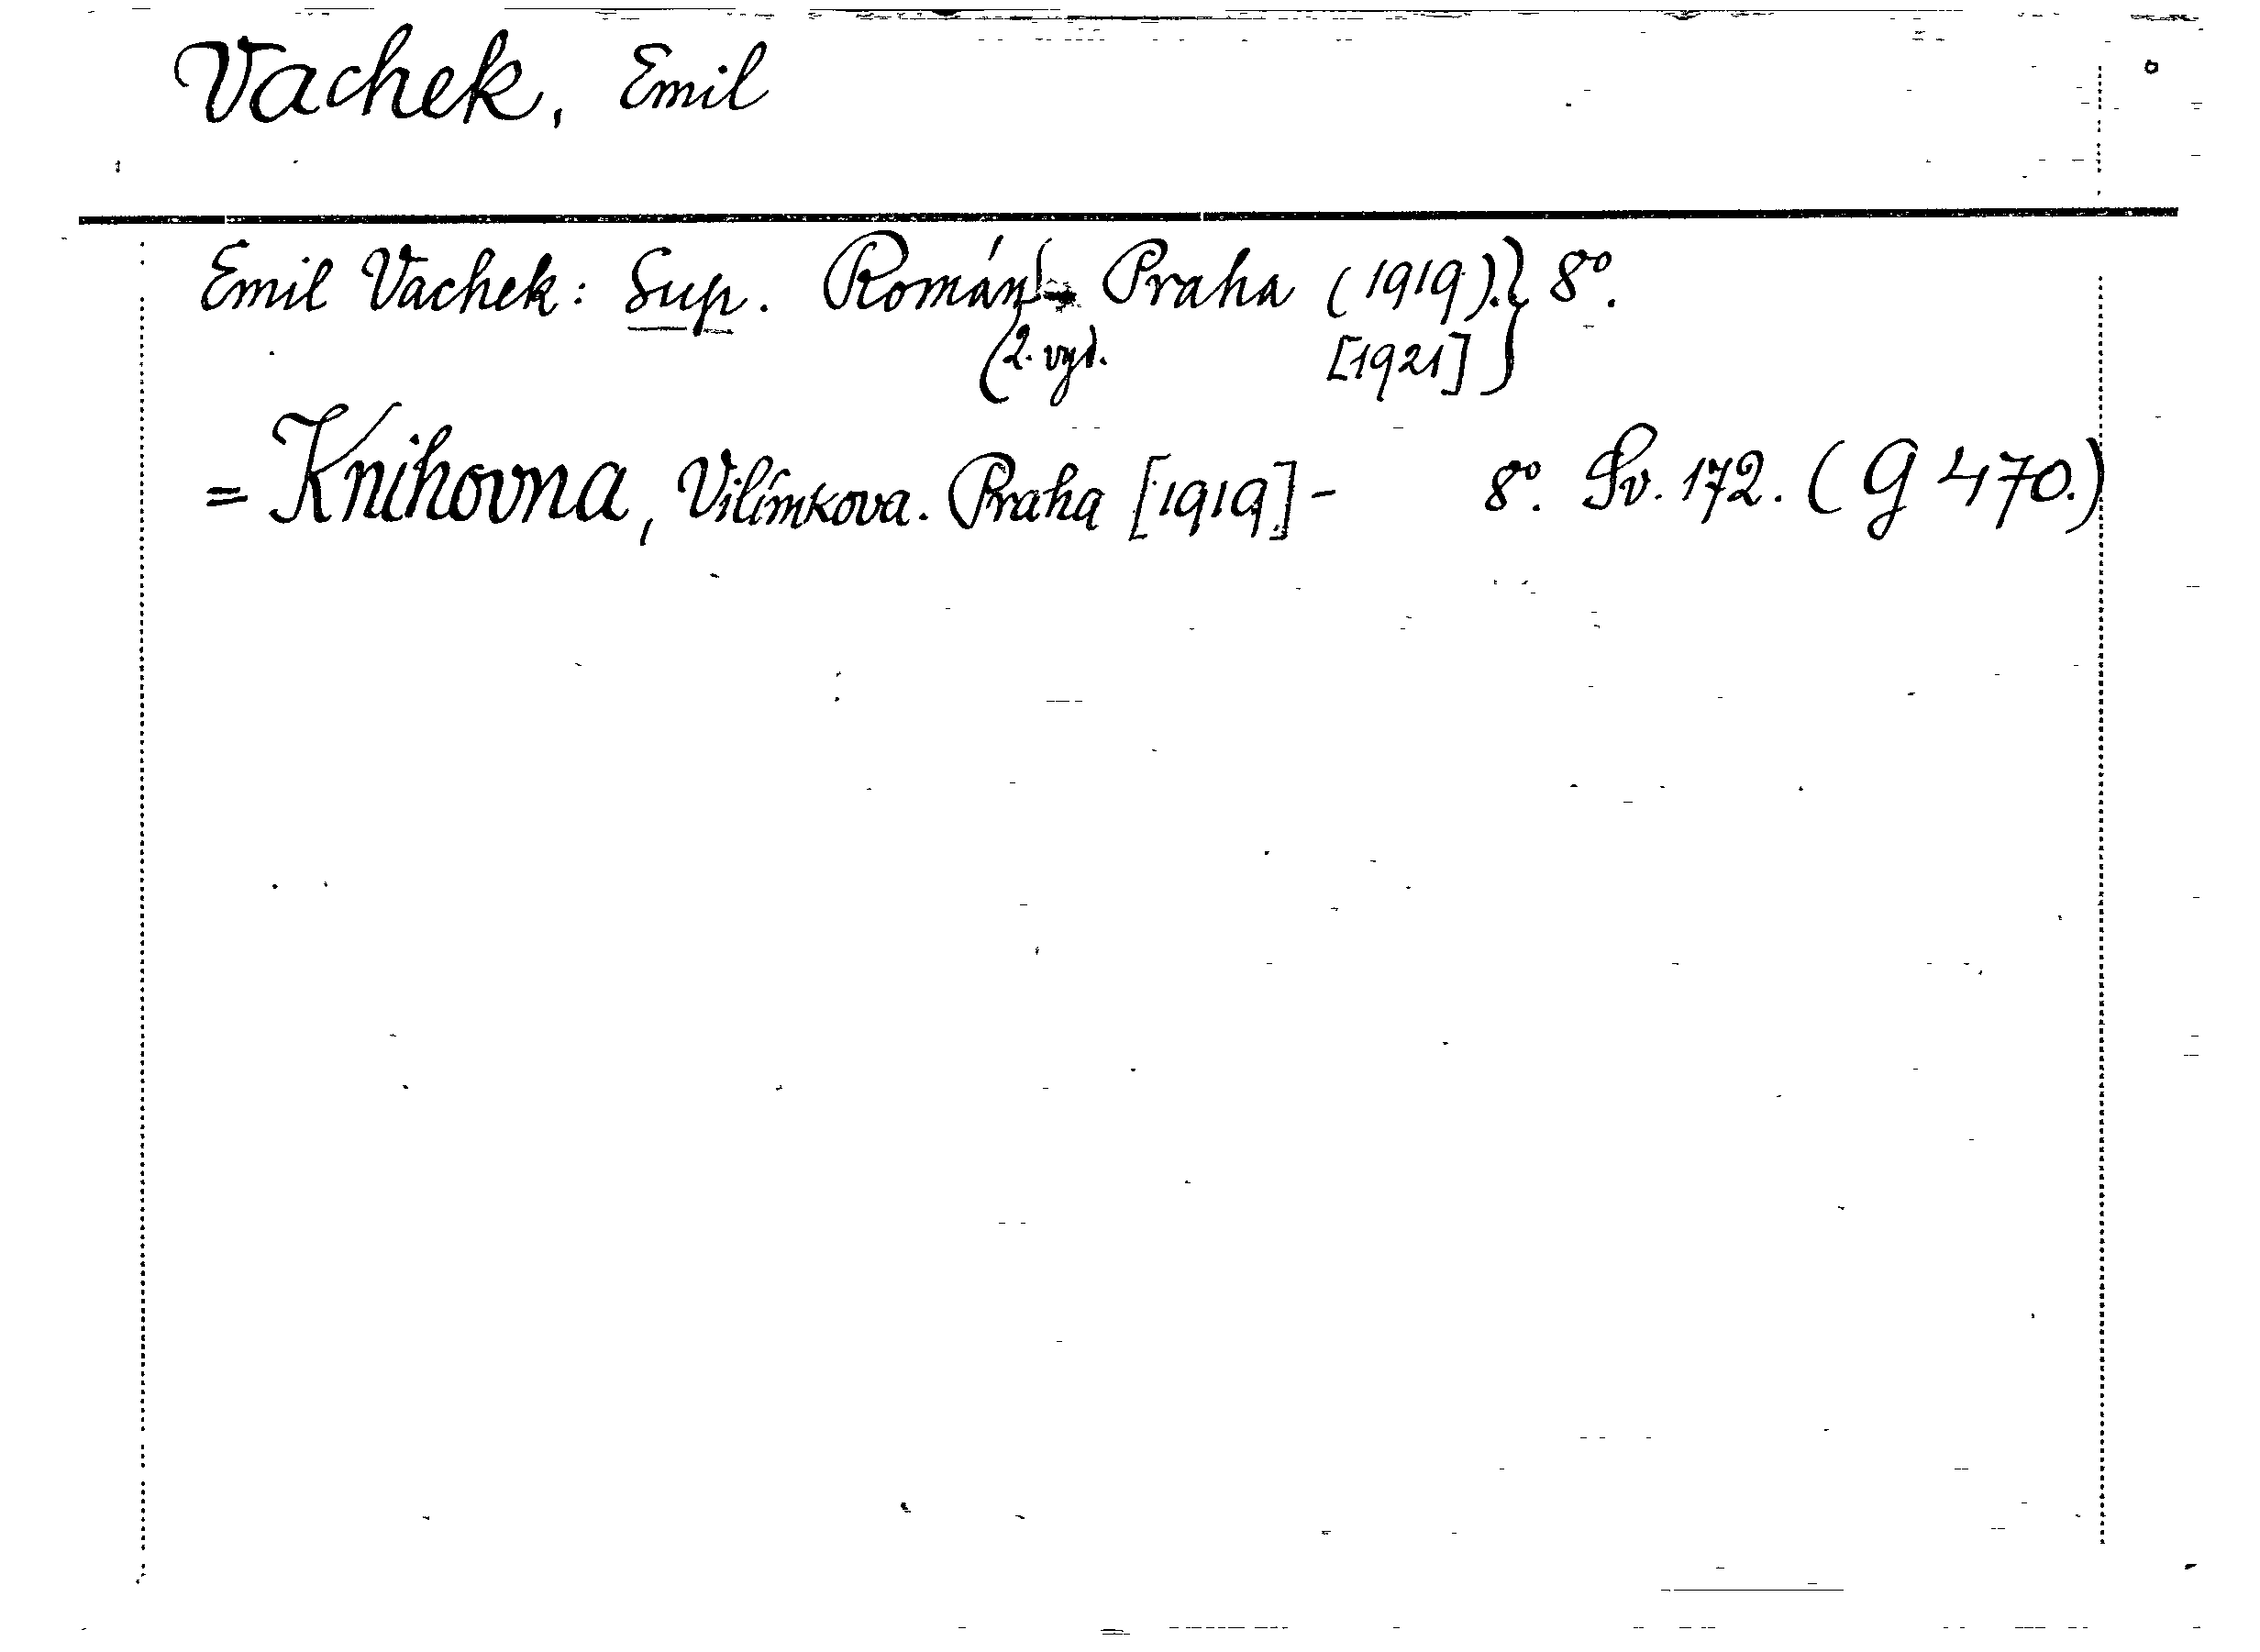 Vachek, Emil
Emil Vachek: Sup. Román - Praha (1919).} 8°.
(2. vyd. [1921]}
= Knihovna, Vilímkova. Praha [1919] - 8°. Sv. 172. (G 470.)